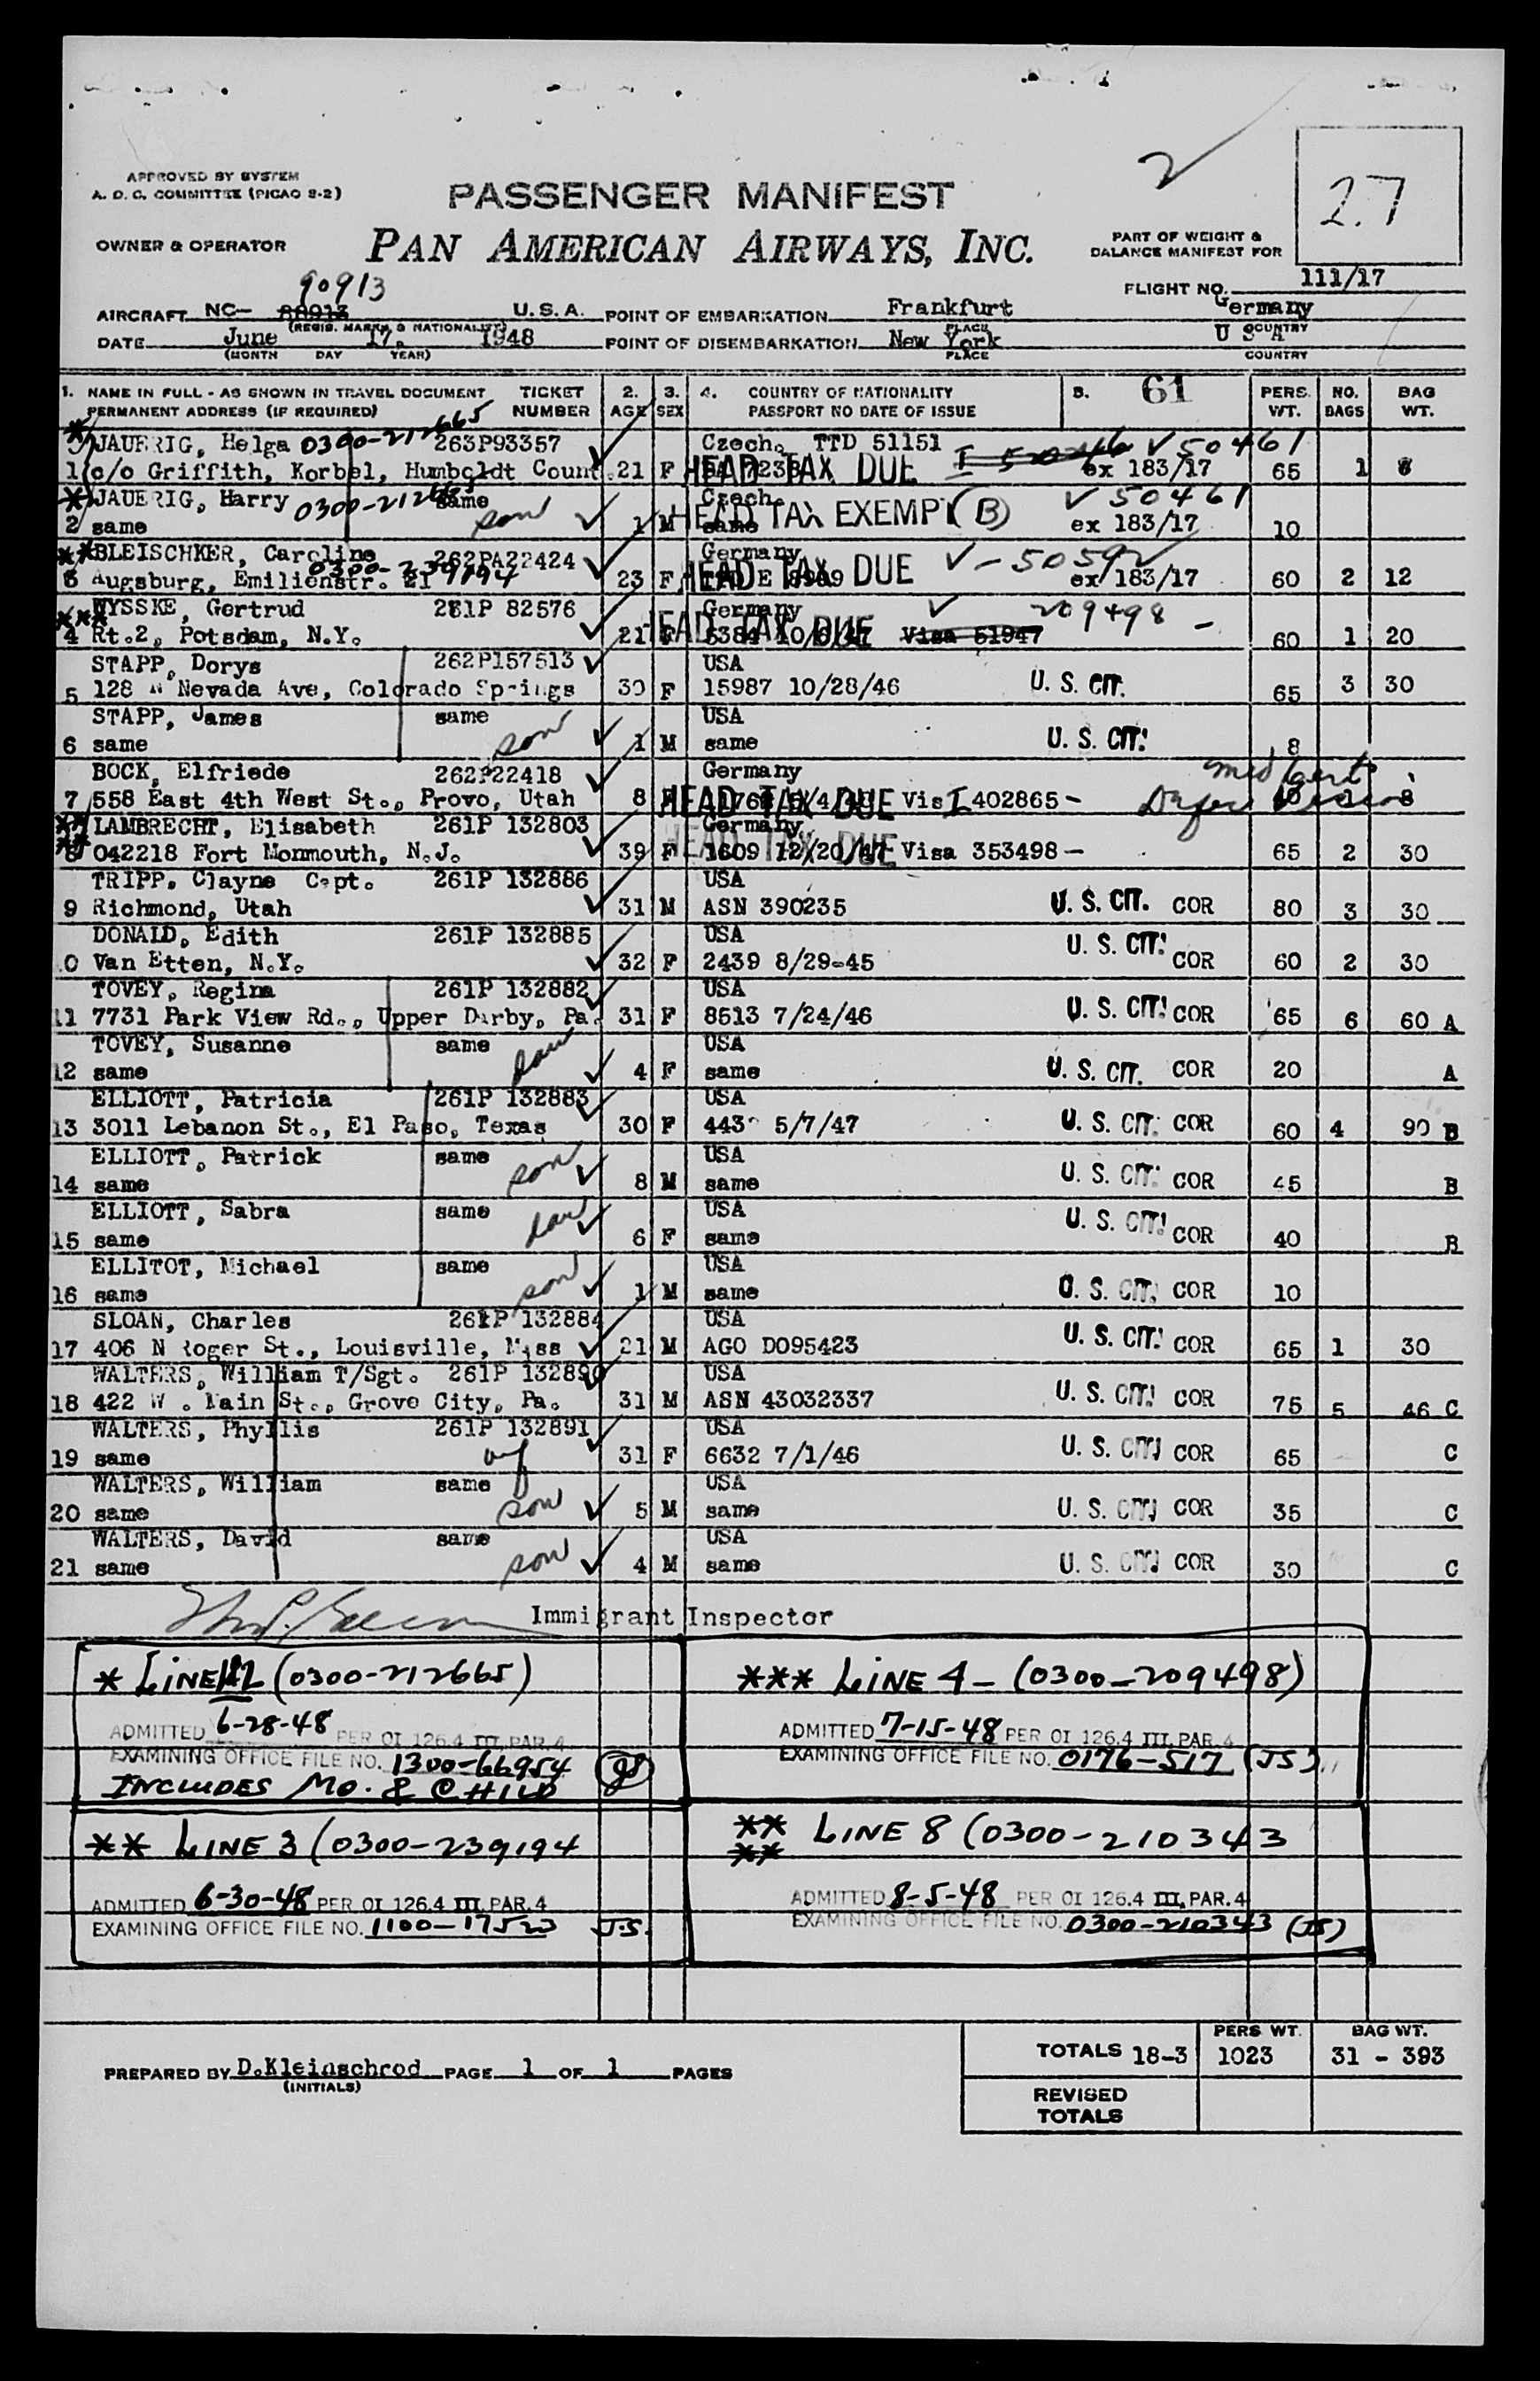 APPROVED BY SYSTEM
A. O. C. COMMITTEE (PICAO S-2)
PASSENGER MANIFEST
27
OWNER & OPERATOR
PAN AMERICAN AIRWAYS, INC.
PART OF WEIGHT &
BALANCE MANIFEST FOR
90913
FLIGHT NO. 111/17
AIRCRAFT NC- U.S.A. POINT OF EMBARKATION Frankfurt Germany
(REGIS. MARKS & NATIONALITY) PLACE COUNTRY
DATE June 17, 1948 POINT OF DISEMBARKATION New York U S A
(MONTH DAY YEAR) PLACE COUNTRY
1. NAME IN FULL - AS SHOWN IN TRAVEL DOCUMENT TICKET 2. 3. 4. COUNTRY OF NATIONALITY 61 PERS. NO. BAG
PERMANENT ADDRESS (IF REQUIRED) NUMBER AGE SEX PASSPORT NO DATE OF ISSUE WT. BAGS WT.
* JAUERIG, Helga 0300-212665 263P93357 Czech. TTD 51151 50461
1 c/o Griffith, Korbel, Humboldt Count. 21 F HEAD TAX DUE ex 183/17 65 1
* JAUERIG, Harry same Czech. 50461
2 same son 1 M same HEAD TAX EXEMPT (B) ex 183/17 10
** BLEISCHKER, Caroline 0300-239194 262PA22424 Germany 5059
3 Augsburg, Emilienstr. 21 23 F HEAD TAX DUE ex 183/17 60 2 12
*** WYSSKE, Gertrud 261P 82576 Germany 209498 -
4 Rt.2, Potsdam, N.Y. 21 F HEAD TAX DUE Visa 51947 60 1 20
STAPP, Dorys 262P157513 USA
5 128 N Nevada Ave, Colorado Springs 30 F 15987 10/28/46 U. S. CIT. 65 3 30
STAPP, James same USA
6 same son 1 M same U. S. CIT. 8
BOCK, Elfriede 262P22418 Germany med cert
7 558 East 4th West St., Provo, Utah 8 HEAD TAX DUE Vis I 402865- 8
**** LAMBRECHT, Elisabeth 261P 132803 Germany
8 042218 Fort Monmouth, N.J. 39 F 1609 12/20/47 HEAD TAX DUE Visa 353498- 65 2 30
TRIPP, Clayne Capt. 261P 132886 USA
9 Richmond, Utah 31 M ASN 390235 U. S. CIT. COR 80 3 30
DONALD, Edith 261P 132885 USA
10 Van Etten, N.Y. 32 F 2439 8/29-45 U. S. CIT. COR 60 2 30
TOVEY, Regina 261P 132882 USA
11 7731 Park View Rd., Upper Darby, Pa. 31 F 8513 7/24/46 U. S. CIT. COR 65 6 60 A
TOVEY, Susanne same USA
12 same dau 4 F same U. S. CIT. COR 20 A
ELLIOTT, Patricia 261P 132883 USA
13 3011 Lebanon St., El Paso, Texas 30 F 5/7/47 U. S. CIT. COR 60 4 90 B
ELLIOTT, Patrick same USA
14 same son 8 M same U. S. CIT. COR 45 B
ELLIOTT, Sabra same USA
15 same dau 6 F same U. S. CIT. COR 40 B
ELLITOT, Michael same USA
16 same son 1 M same U. S. CIT. COR 10
SLOAN, Charles 261P 132884 USA
17 406 N Roger St., Louisville, Miss 21 M AGO D095423 U. S. CIT. COR 65 1 30
WALTERS, William T/Sgt. 261P 132890 USA
18 422 W . Main St., Grove City, Pa. 31 M ASN 43032337 U. S. CIT. COR 75 5 46 C
WALTERS, Phyllis 261P 132891 USA
19 same wf 31 F 6632 7/1/46 U. S. CIT. COR 65 C
WALTERS, William same USA
20 same son 5 M same U. S. CIT. COR 35 C
WALTERS, David same USA
21 same son 4 M same U. S. CIT. COR 30 C
Immigrant Inspector
* LINE 1&2 (0300-212665)
ADMITTED 6-28-48 PER OI 126.4 III, PAR. 4
EXAMINING OFFICE FILE NO. 1300-66954 JS
INCLUDES MO. & CHILD
*** LINE 4 - (0300-209498)
ADMITTED 7-15-48 PER OI 126.4 III, PAR. 4
EXAMINING OFFICE FILE NO. 0176-517 (JS)
** LINE 3 (0300-239194
ADMITTED 6-30-48 PER OI 126.4 III, PAR. 4
EXAMINING OFFICE FILE NO. 1100-17523 JS.
**** LINE 8 (0300-210343
ADMITTED 8-5-48 PER OI 126.4 III, PAR. 4
EXAMINING OFFICE FILE NO. 0300-210343 (JS)
PERS WT. BAG WT.
TOTALS 18-3 1023 31 - 393
PREPARED BY D.Kleinschrod PAGE 1 OF 1 PAGES
(INITIALS)
REVISED
TOTALS